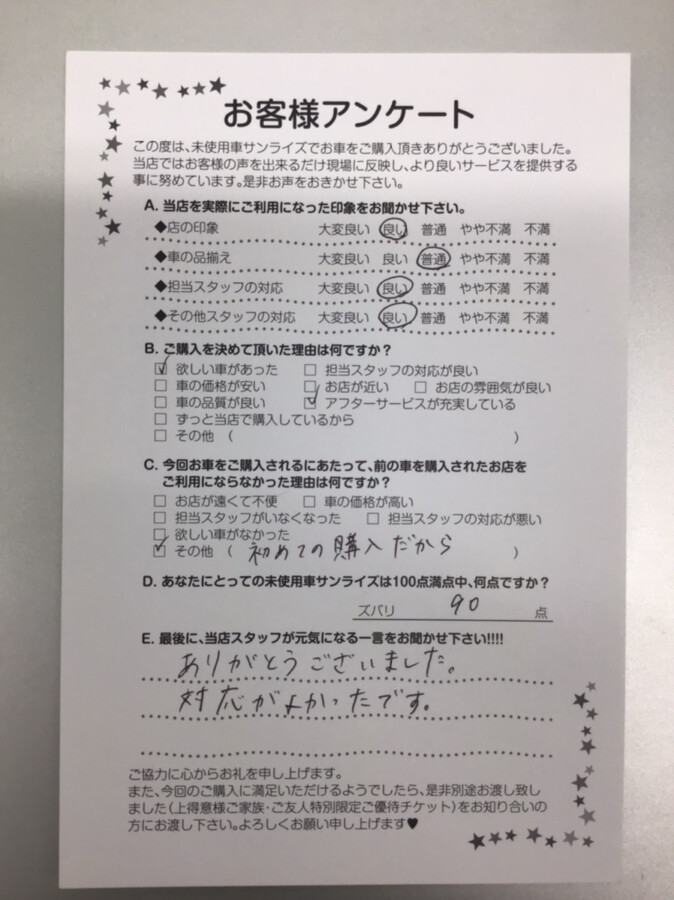 お客様アンケート
この度は、未使用車サンライズでお車をご購入頂きありがとうございました。
当店ではお客様の声を出来るだけ現場に反映し、より良いサービスを提供する
事に努めています。是非お声をおきかせ下さい。
A. 当店を実際にご利用になった印象をお聞かせ下さい。
◆店の印象 大変良い 良い 普通 やや不満 不満
◆車の品揃え 大変良い 良い 普通 やや不満 不満
◆担当スタッフの対応 大変良い 良い 普通 やや不満 不満
◆その他スタッフの対応 大変良い 良い 普通 やや不満 不満
B. ご購入を決めて頂いた理由は何ですか?
☑ 欲しい車があった □ 担当スタッフの対応が良い
□ 車の価格が安い □ お店が近い □ お店の雰囲気が良い
□ 車の品質が良い ☑ アフターサービスが充実している
□ ずっと当店で購入しているから
□ その他 ( )
C. 今回お車をご購入されるにあたって、前の車を購入されたお店を
ご利用にならなかった理由は何ですか?
□ お店が遠くて不便 □ 車の価格が高い
□ 担当スタッフがいなくなった □ 担当スタッフの対応が悪い
□ 欲しい車がなかった
☑ その他 ( 初めての購入だから )
D. あなたにとっての未使用車サンライズは100点満点中、何点ですか?
ズバリ 90 点
E. 最後に、当店スタッフが元気になる一言をお聞かせ下さい!!!!
ありがとうございました。
対応がよかったです。
ご協力に心からお礼を申し上げます。
また、今回のご購入に満足いただけるようでしたら、是非別途お渡し致し
ました(上得意様ご家族・ご友人特別限定ご優待チケット)をお知り合いの
方にお渡し下さい。よろしくお願い申し上げます♥